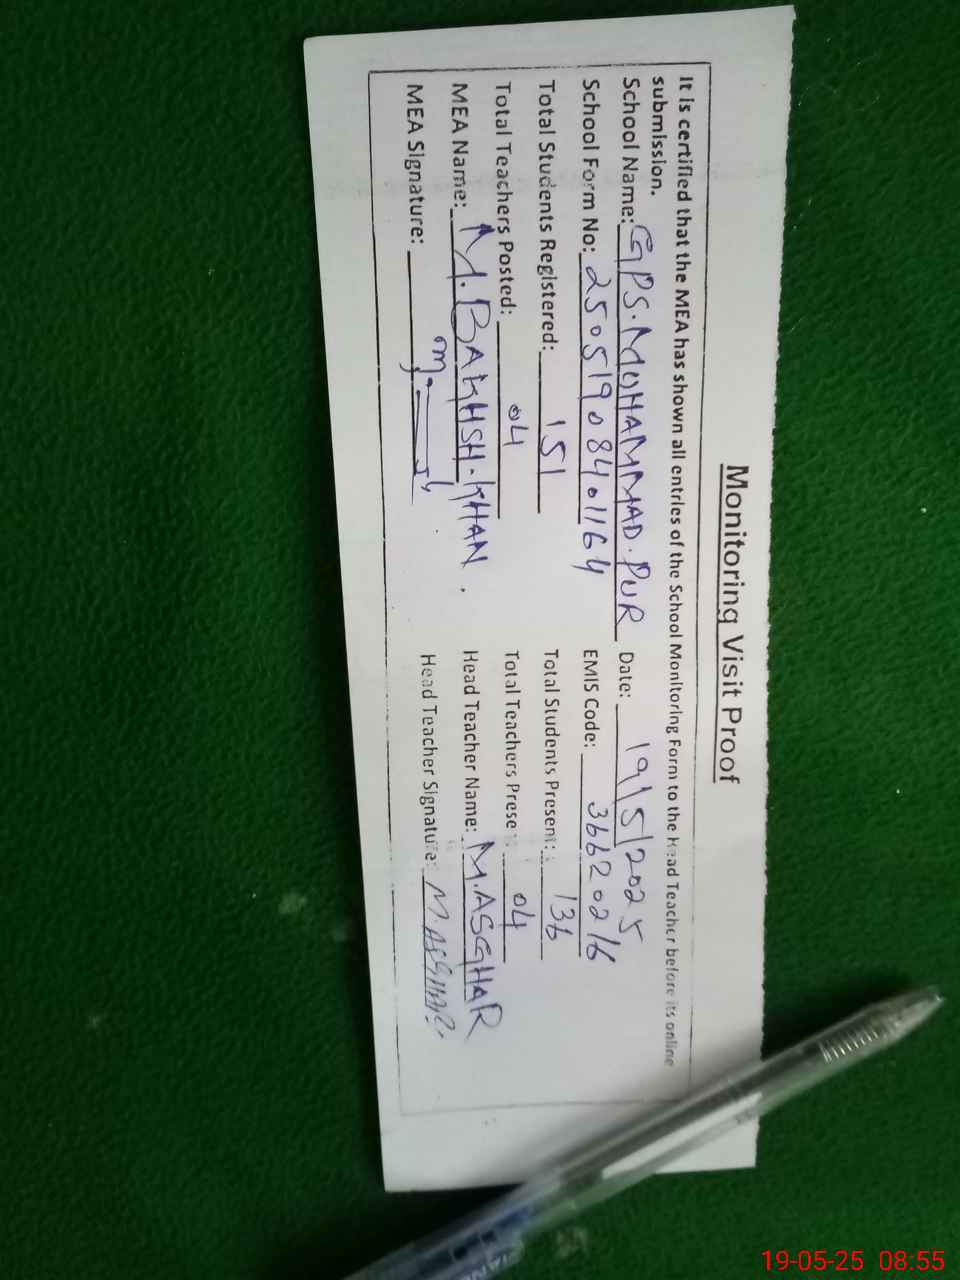 Monitoring Visit Proof
It is certified that the MEA has shown all entries of the School Monitoring Form to the Head Teacher before its online
submission.
School Name: GPS.MOHAMMAD.PUR Date: 19/5/2025
School Form No: 25051908401164 EMIS Code: 36620216
Total Students Registered: 151 Total Students Present: 136
Total Teachers Posted: 04 Total Teachers Prese : 04
MEA Name: M.BAKHSH.KHAN. Head Teacher Name: M.ASGHAR
MEA Signature: Head Teacher Signature: M.ASGHAR
19-05-25 08:55